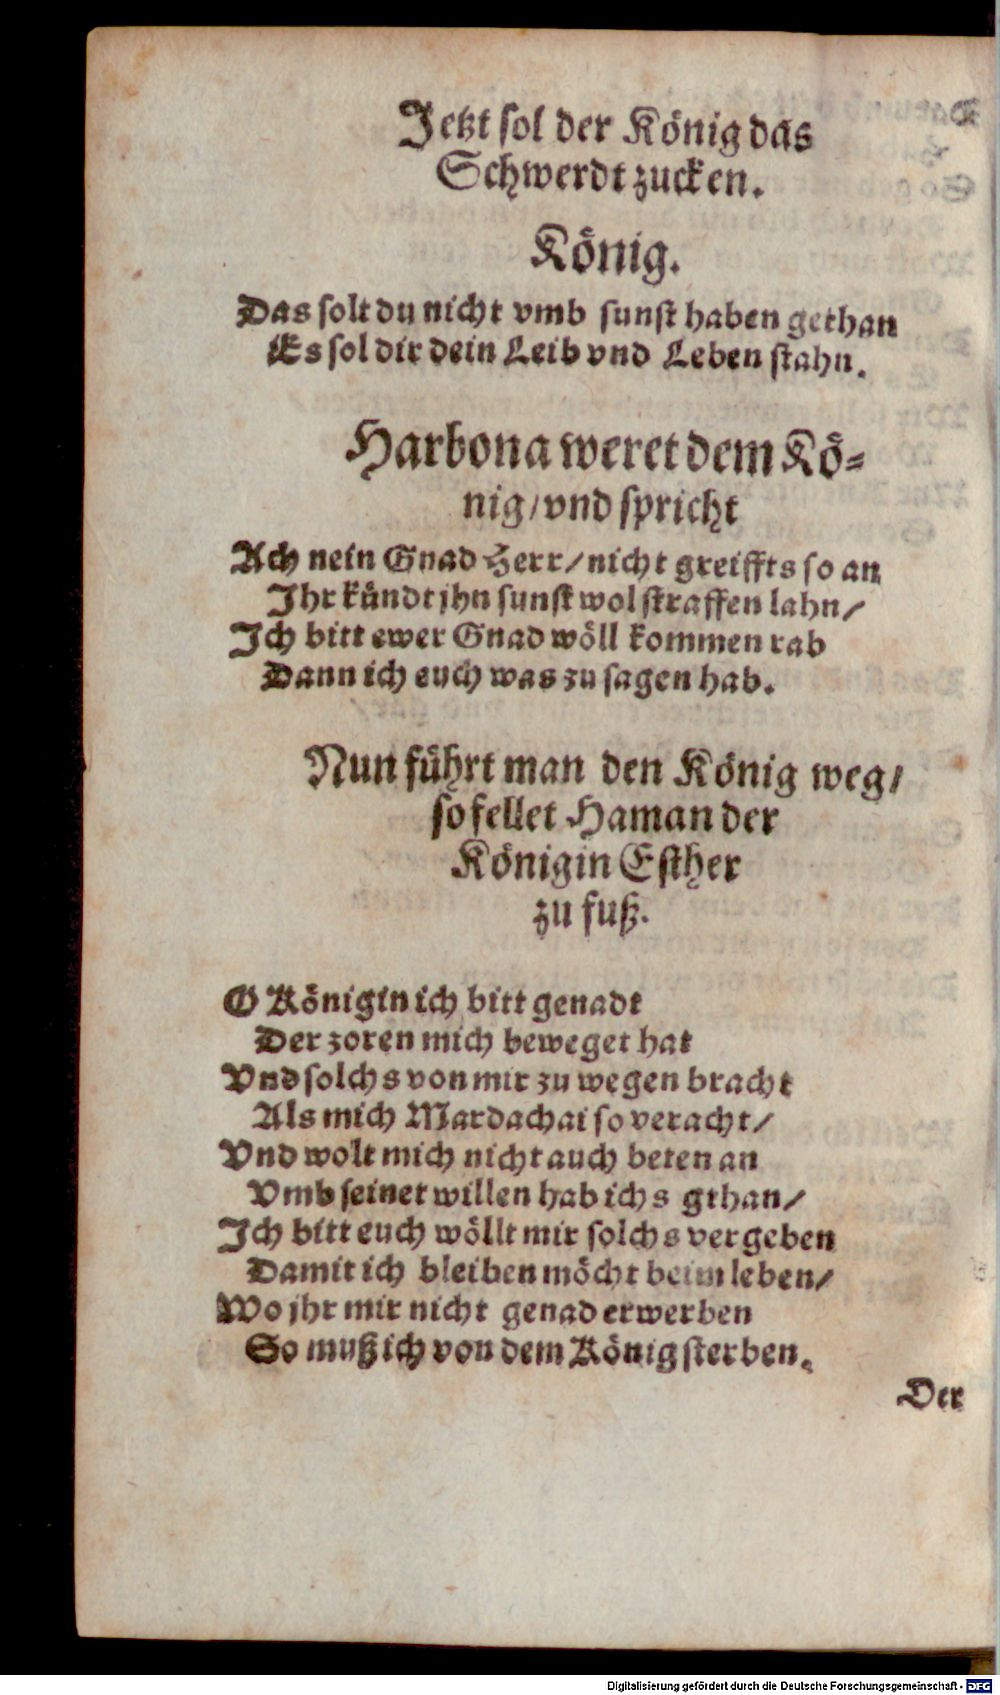 Jetzt sol der König das
Schwerdt zucken.
König.
Das solt du nicht vmb sunst haben gethan
Es sol dir dein Leib vnd Leben stahn.
Harbona weret dem Kö-
nig/ vnd spricht
Ach nein Gnad Herr/ nicht greiffts so an
Ihr kündt jhn sunst wol straffen lahn/
Ich bitt ewer Gnad wöll kommen rab
Dann ich euch was zu sagen hab.
Nun führt man den König weg/
so fellet Haman der
Königin Esther
zu fuß.
O Königin ich bitt genadt
Der zoren mich beweget hat
Vnd solchs von mir zu wegen bracht
Als mich Mardachai so veracht/
Vnd wolt mich nicht auch beten an
Vmb seinet willen hab ichs gthan/
Ich bitt euch wöllt mir solchs vergeben
Damit ich bleiben möcht beim leben/
Wo jhr mir nicht genad erwerben
So muß ich von dem König sterben.
Der
Digitalisierung gefördert durch die Deutsche Forschungsgemeinschaft - DFG